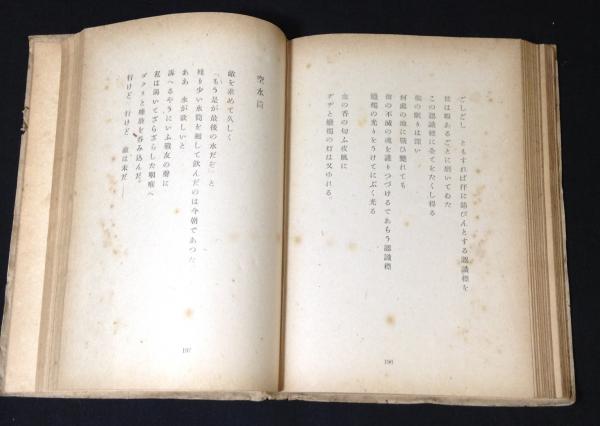 ごしごし　ともすれば汗に錆びんとする認識標を
彼は暇あるごとに磨いてゐた
この認識標に全てをたくし得る
彼の眠りは深い
何處の地に戰ひ斃れても
彼の不滅の魂を護りつづけるであらう認識標
蠟燭の光りをうけてにぶく光る
血の香の匂ふ夜風に
ヂヂと蠟燭の灯は又ゆれる。
196
空水筒
敵を求めて久しく
「もう是が最後の水だぞ」と
殘り少い水筒を廻して飮んだのは今朝であつた
ああ　水が欲しいと
訴へるやうにいふ戰友の聲に
私は渴いてざらざらした咽喉へ
ゴクリと唾液を呑み込んだ。
行けど　行けど　敵は未だ――
197